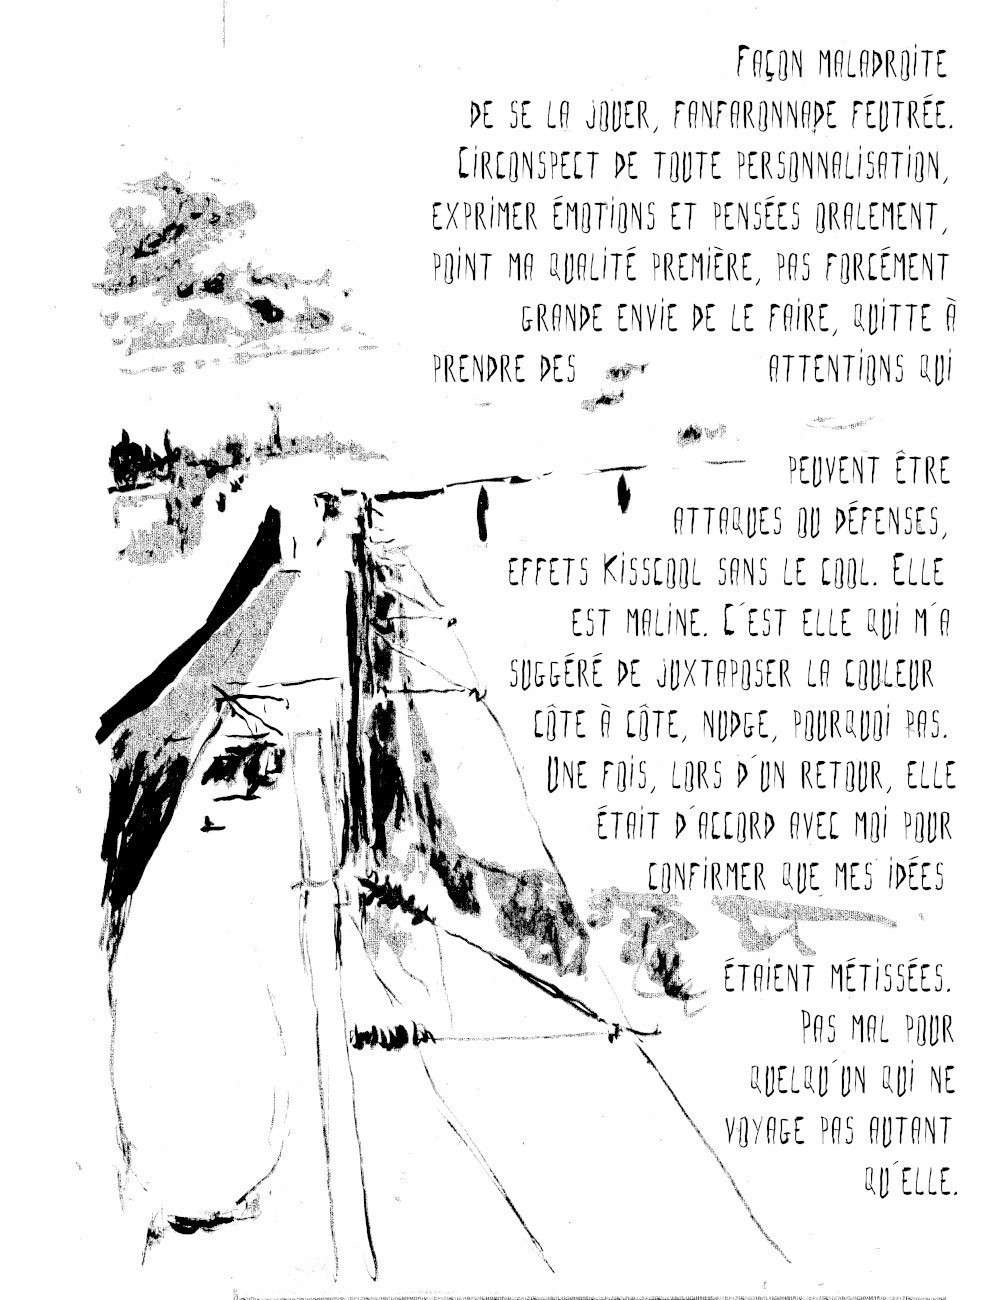 Façon maladroite
de se la jouer, fanfaronnade feutrée.
Circonspect de toute personnalisation,
exprimer émotions et pensées oralement,
point ma qualité première, pas forcément
grande envie de le faire, quitte à
prendre des attentions qui
peuvent être
attaques ou défenses,
effets Kisscool sans le cool. Elle
est maline. C'est elle qui m'a
suggéré de juxtaposer la couleur
côte à côte, nudge, pourquoi pas.
Une fois, lors d'un retour, elle
était d'accord avec moi pour
confirmer que mes idées
étaient métissées.
Pas mal pour
quelqu'un qui ne
voyage pas autant
qu'elle.